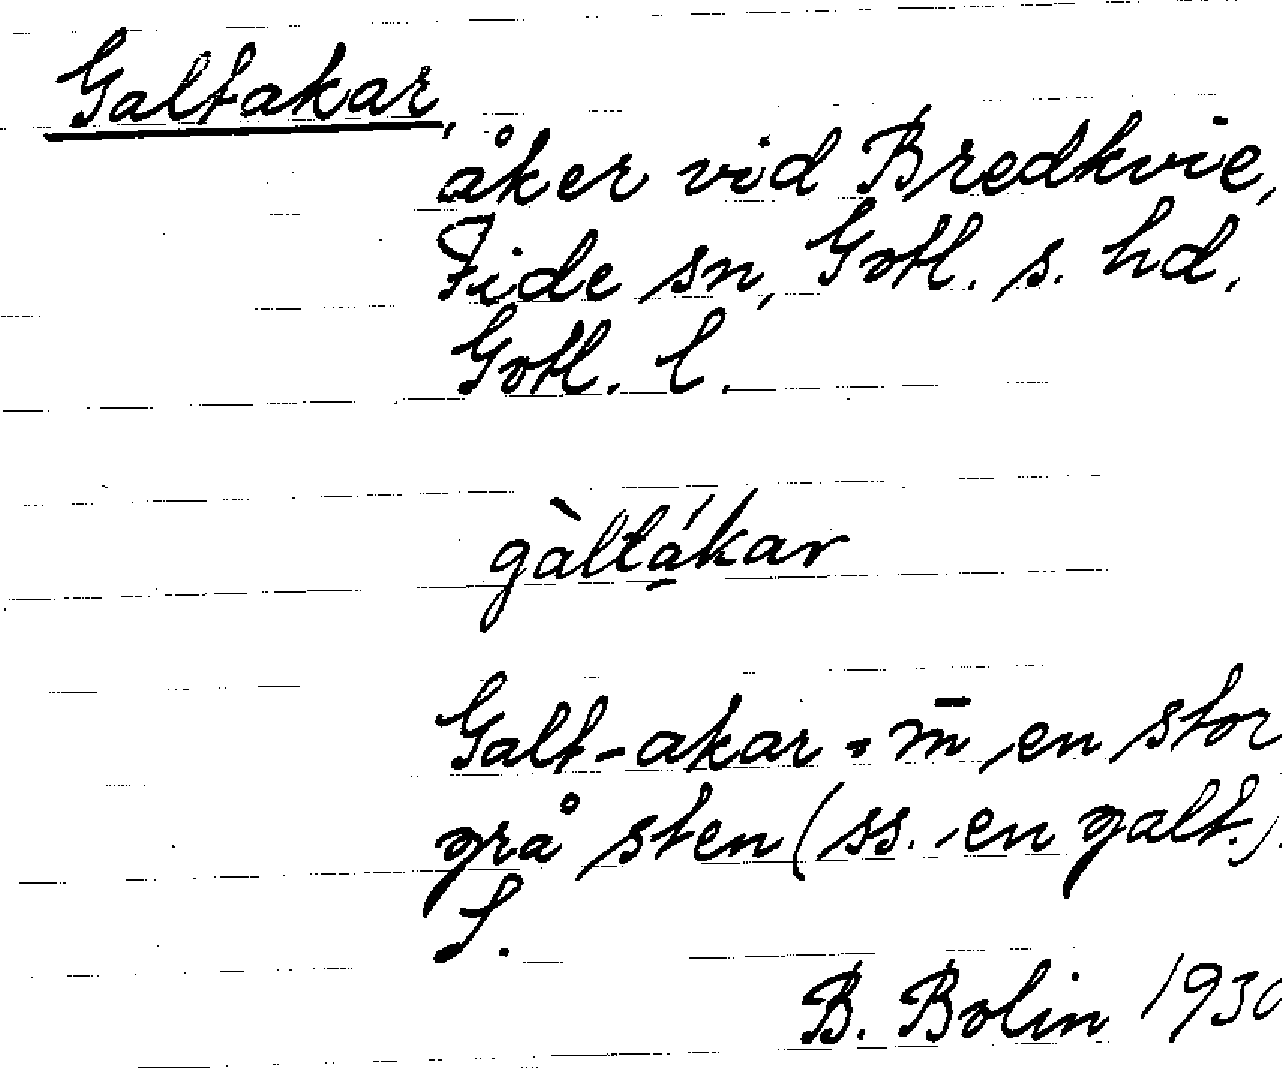 Galtakar,
åker vid Bredkvie,
Fide sn, Gotl. s. hd,
Gotl. l.
gàltá̱kar
Galt-akar = m̄ en stor
grå sten (ss. en galt.).
S.
B. Bolin 1930